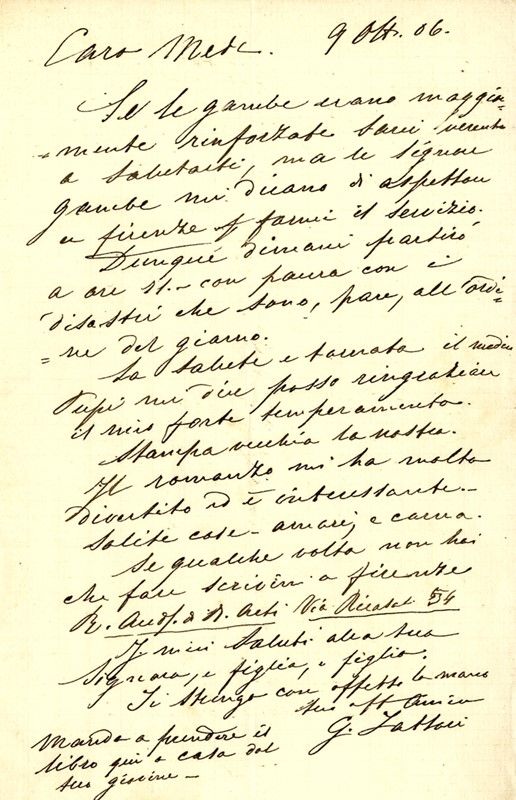 Caro Mede. 9 Ott. 06.
Se le gambe erano maggior=
=mente rinforzate sarei venuto
a salutarti, ma le signore
gambe mi dicano di aspettare
a firenze p farmi il servizio.
Dunque dimani partirò
a ore 11.- con paura con i
disastri che sono, pare, all'ordi=
=ne del giorno.
La salute è tornata il medico
mi dice posso ringraziare
il mio forte temperamento.
Stampa vecchia la nostra.
Il romanzo mi ha molto
divertito ed è interessante.-
Solite cose- amori, e carna.
Se qualche volta non hai
che fare scrivimi a firenze
R. Acad. di B. Arti Via Ricasoli 54
I miei saluti alla tua
Signora, e figlia, e figlio.
Ti stringo con affetto la mano
tuo aff Amico
G. Fattori
Manda a prendere il
libro qui a casa dal
tuo giovine-